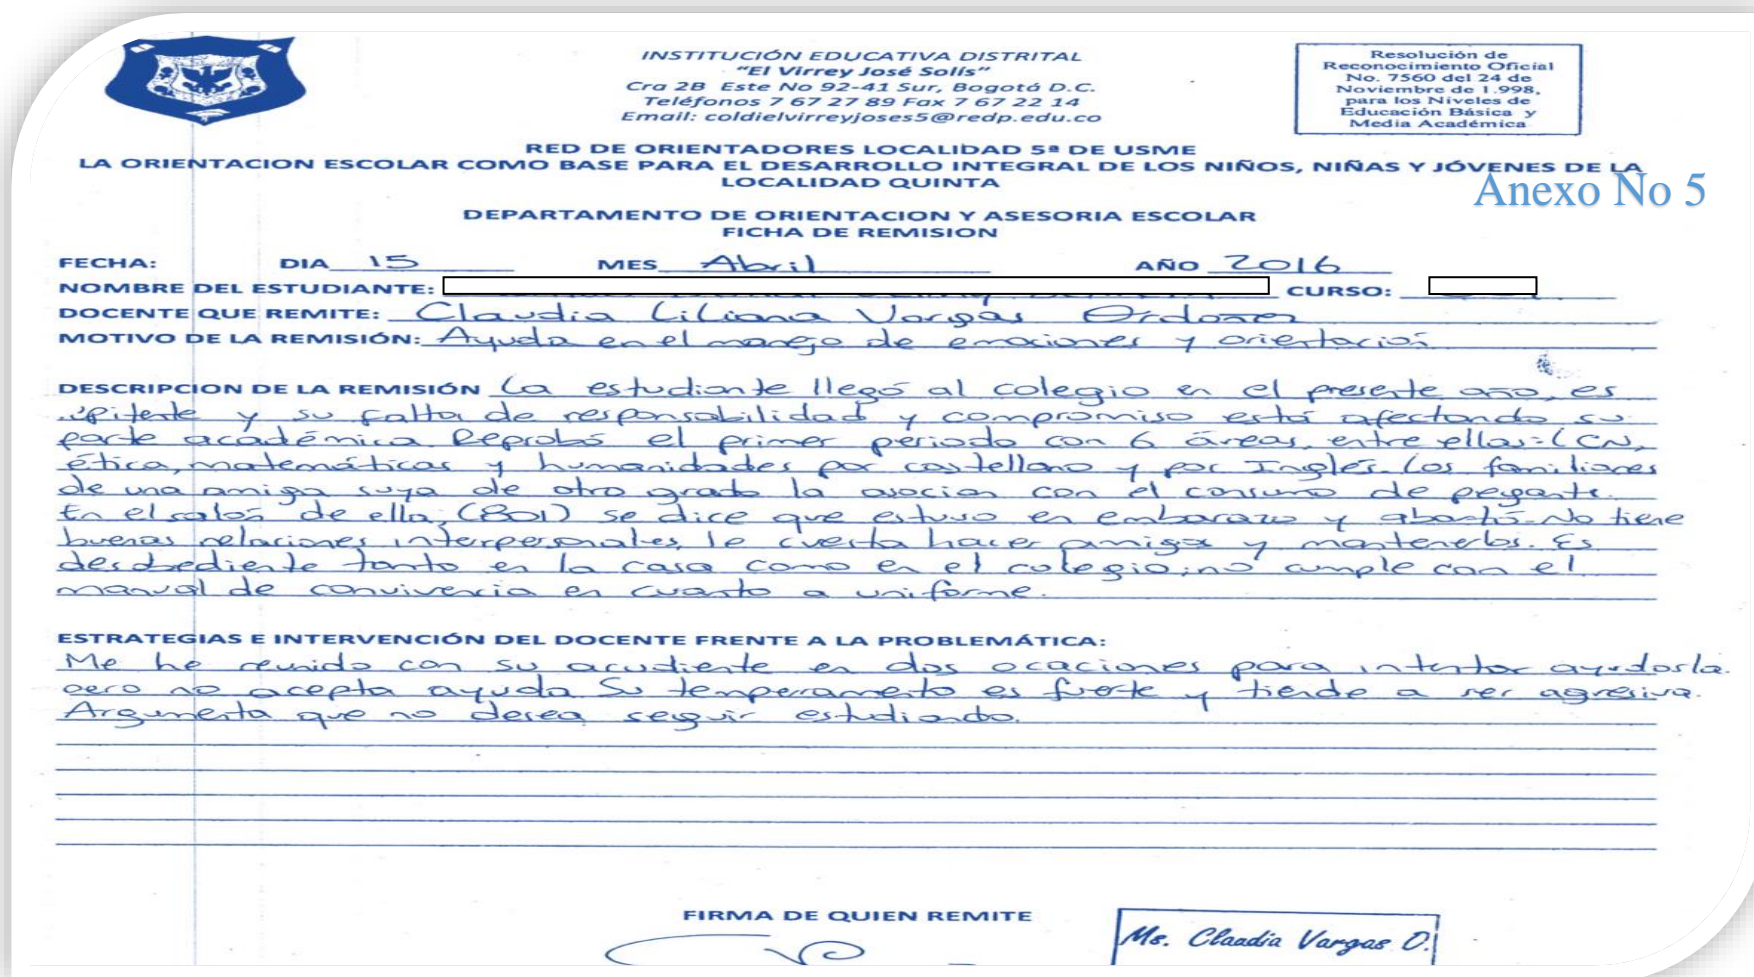 INSTITUCIÓN EDUCATIVA DISTRITAL
"El Virrey José Solís"
Cra 2B Este No 92-41 Sur, Bogotá D.C.
Teléfonos 7 67 27 89 Fax 7 67 22 14
Email: coldielvirreyjoses5@redp.edu.co
Resolución de
Reconocimiento Oficial
No. 7560 del 24 de
Noviembre de 1.998,
para los Niveles de
Educación Básica y
Media Académica
RED DE ORIENTADORES LOCALIDAD 5ª DE USME
LA ORIENTACION ESCOLAR COMO BASE PARA EL DESARROLLO INTEGRAL DE LOS NIÑOS, NIÑAS Y JÓVENES DE LA
LOCALIDAD QUINTA
Anexo No 5
DEPARTAMENTO DE ORIENTACION Y ASESORIA ESCOLAR
FICHA DE REMISION
FECHA: DIA 15 MES Abril AÑO 2016
NOMBRE DEL ESTUDIANTE: CURSO:
DOCENTE QUE REMITE: Claudia Liliana Vargas Ordoñez
MOTIVO DE LA REMISIÓN: Ayuda en el manejo de emociones y orientación
DESCRIPCION DE LA REMISIÓN La estudiante llegó al colegio en el presente año, es
repitente y su falta de responsabilidad y compromiso está afectando su
parte académica. Reprobó el primer periodo con 6 áreas, entre ellas: (CN,
ética, matemáticas y humanidades por castellano y por Inglés. Los familiares
de una amiga suya de otro grado la asocian con el consumo de pegante.
En el salón de ella, (801) se dice que estuvo en embarazo y abortó. No tiene
buenas relaciones interpersonales, le cuesta hacer amigos y mantenerlos. Es
desobediente tanto en la casa como en el colegio, no cumple con el
manual de convivencia en cuanto a uniforme.
ESTRATEGIAS E INTERVENCIÓN DEL DOCENTE FRENTE A LA PROBLEMÁTICA:
Me he reunido con su acudiente en dos ocaciones para intentar ayudarla.
pero no acepta ayuda. Su temperamento es fuerte y tiende a ser agresiva.
Argumenta que no desea seguir estudiando.
FIRMA DE QUIEN REMITE
Ms. Claudia Vargas O.